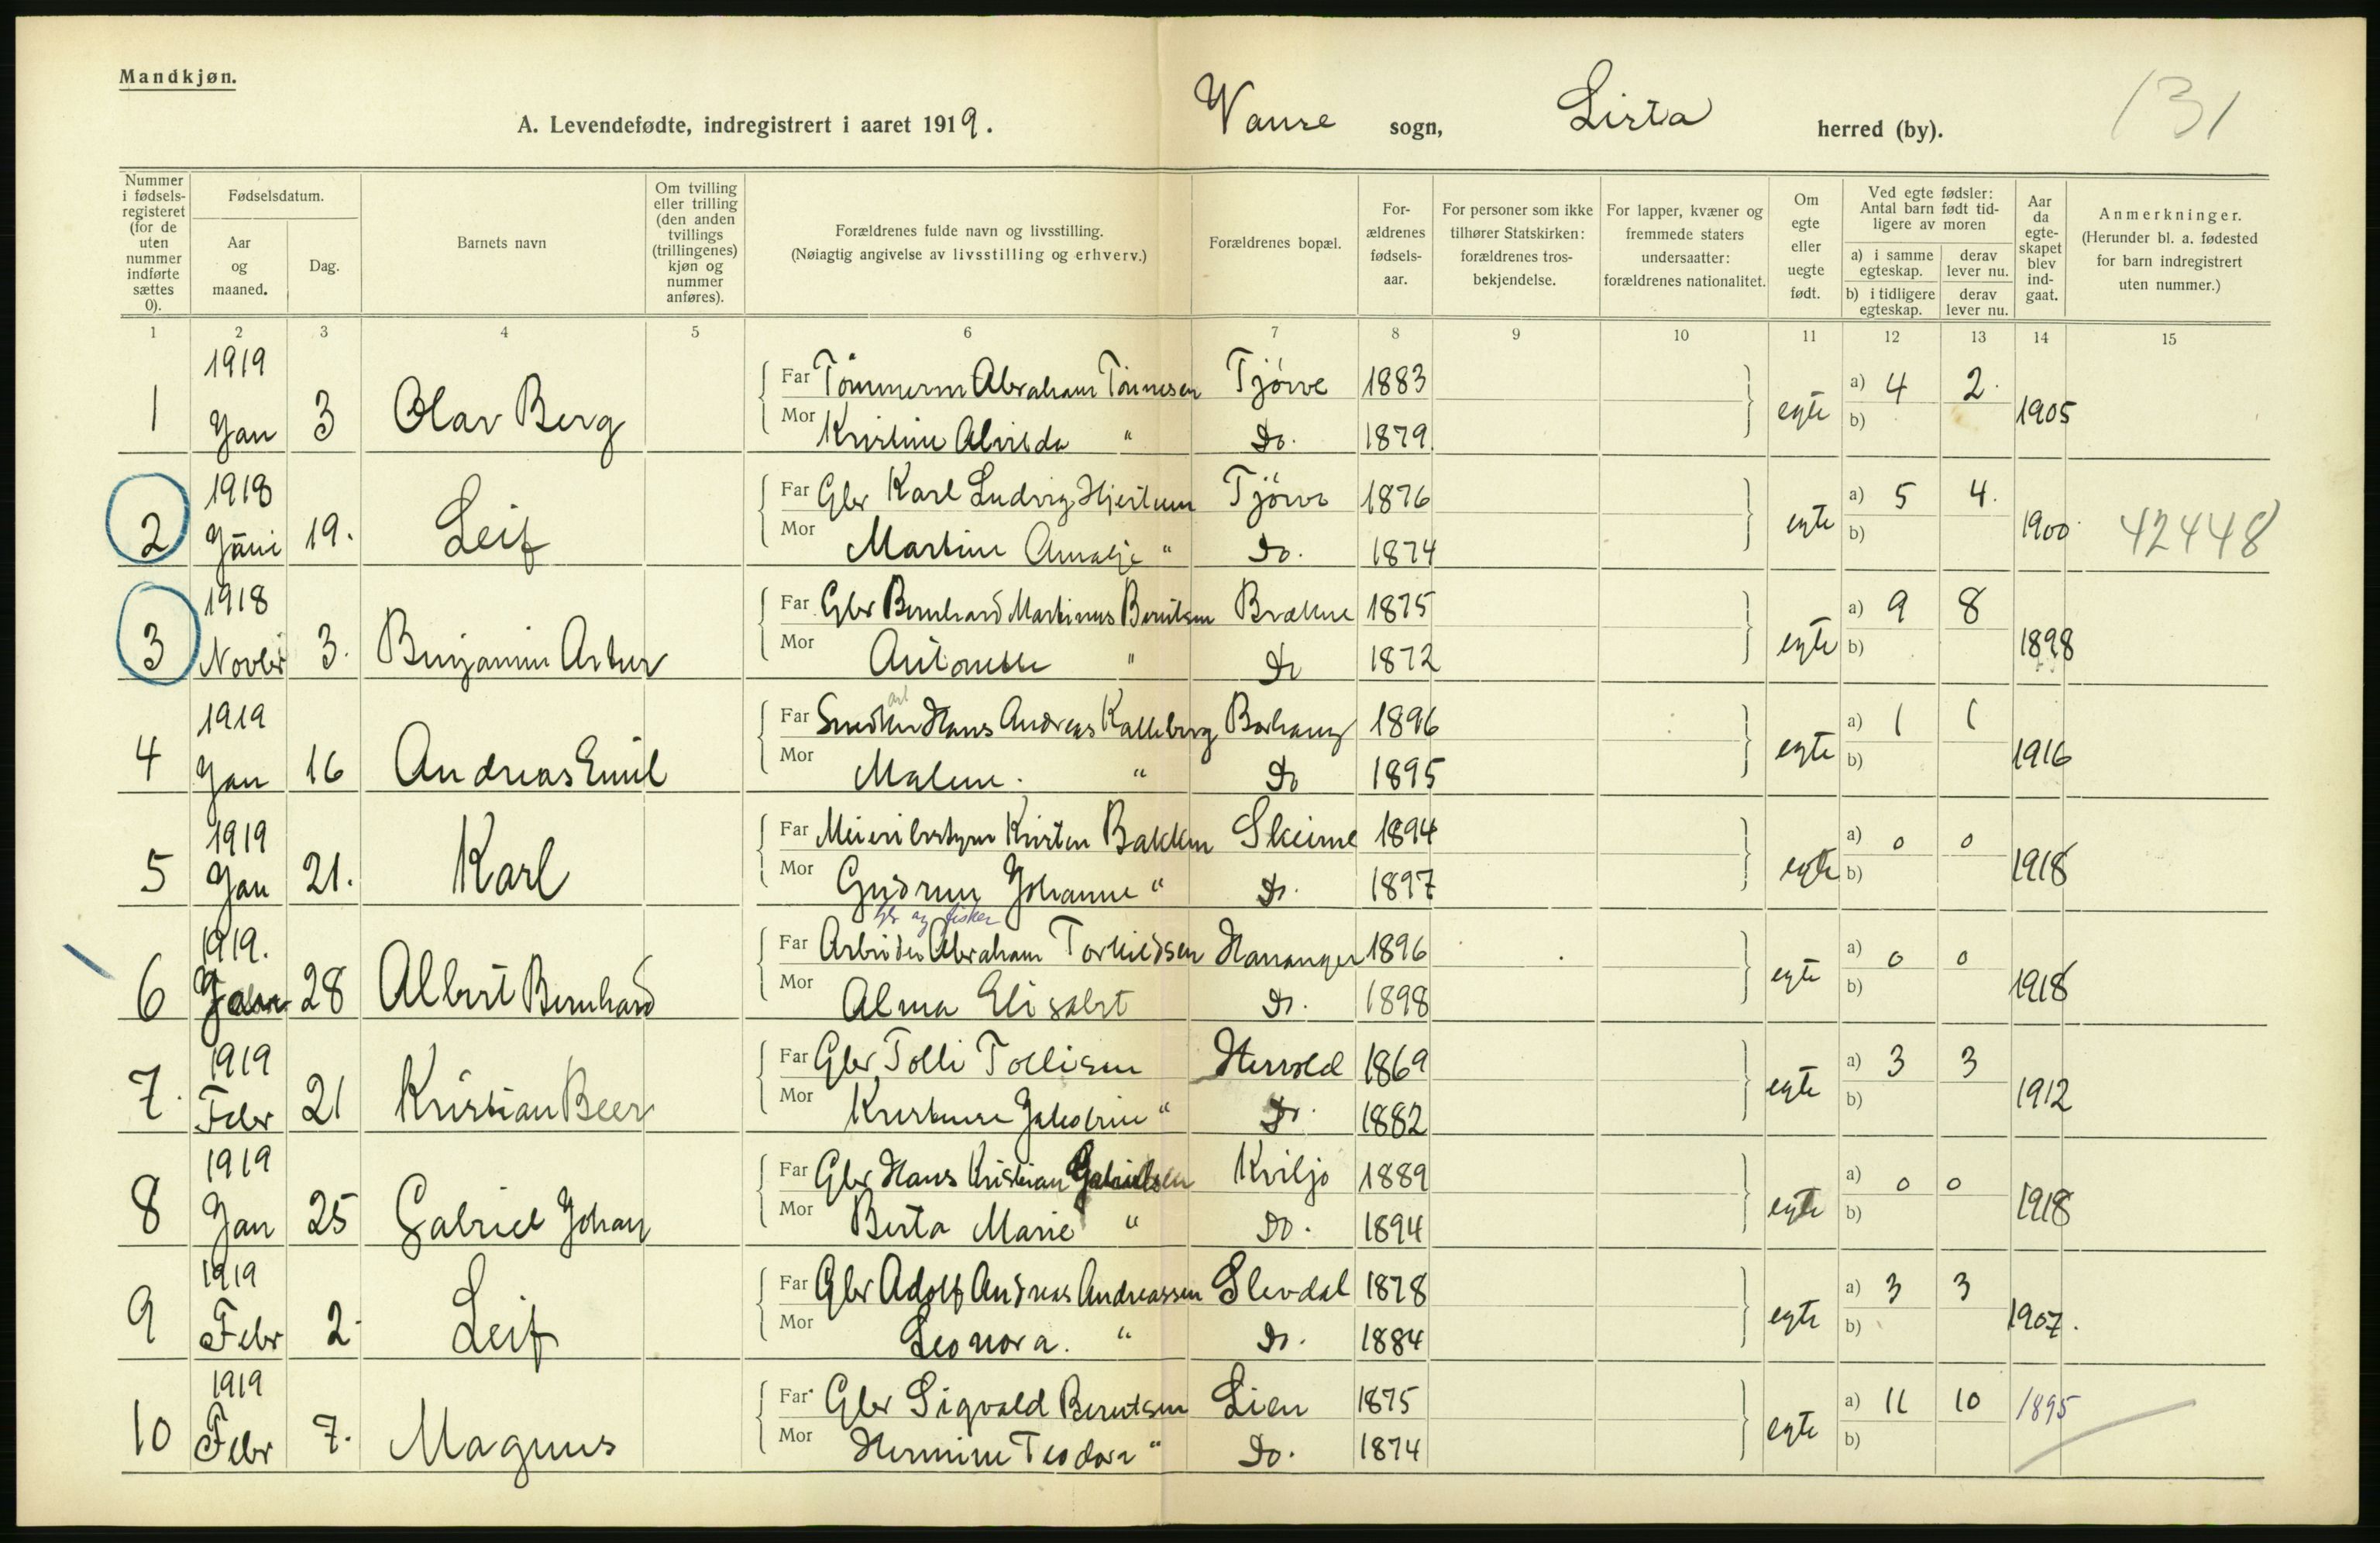 Mandkjøn.
A. Levendefødte, indregistrert i aaret 1919. Vanse sogn, Lista herred (by). 131
Nummer i fødsels-registeret (for de uten nummer indførte sættes 0).
Fødselsdatum.
Aar og maaned.
Dag.
Barnets navn
Om tvilling eller trilling (den anden tvillings (trillingenes) kjøn og nummer anføres).
Forældrenes fulde navn og livsstilling.
(Nøiagtig angivelse av livsstilling og erhverv.)
Forældrenes bopæl.
For-ældrenes fødsels-aar.
For personer som ikke tilhører Statskirken: forældrenes tros-bekjendelse.
For lapper, kvæner og fremmede staters undersaatter: forældrenes nationalitet.
Om egte eller uegte født.
Ved egte fødsler: Antal barn født tid-ligere av moren
a) i samme egteskap.
derav lever nu.
b) i tidligere egteskap.
derav lever nu.
Aar da egte-skapet blev ind-gaat.
Anmerkninger.
(Herunder bl. a. fødested for barn indregistrert uten nummer.)
1 2 3 4 5 6 7 8 9 10 11 12 13 14 15
1919
Far Tømmerm Abraham Tønnesen Tjørve 1883 a) 4 2.
1 Jan 3 Olav Berg egte b) 1905
Mor Kristine Alvilda " Do. 1879
1918
Far Gbr Karl Ludvig Hjertum Tjørve 1876 a) 5 4.
2 Juni 19. Leif egte b) 1900 42448
Mor Martine Amalje " Do. 1874
1918
Far Gbr Bernhard Martinus Berntsen Brækne 1875 a) 9 8
3 Novbr 3. Benjamin Artur egte b) 1898
Mor Antonette " Do 1872
1919
Far Hans Andreas Kalleberg Borhaug 1896 a) 1 1
4 Jan 16 Andreas Emil egte b) 1916
Mor Malene. " Do 1895
1919
Far Meieribestyrer Kristen Bakken Skeime 1894 a) 0 0
5 Jan 21. Karl egte b) 1918
Mor Gudrun Johanne " Do. 1897
gbr og fisker
1919.
Far Arbeider Abraham Torkildsen Hananger 1896 a) 0 0
6 Jan 28 Albert Bernhard egte b) 1918
Mor Alma Elisabet Do. 1898
1919
Far Gbr Tolli Tollisen Hervold 1869 a) 3 3
7. Febr 21 Kristian Beer egte b) 1912
Mor Kristense Jakobine " Do. 1882
1919
Far Gbr Hans Kristian Gabrielsen Kviljo 1889 a) 0 0
8 Jan 25 Gabriel Johan egte b) 1918
Mor Berta Marie " Do. 1894
1919
Far Gbr Adolf Andreas Andreassen Slevdal 1878 a) 3 3
9 Febr 2. Leif egte b) 1907.
Mor Leonora. " Do. 1884
1919
Far Gbr Sigvald Berntsen Lien 1875 a) 11 10 1895
10 Febr 7. Magnus egte b)
Mor Hermine Teodora " Do. 1874